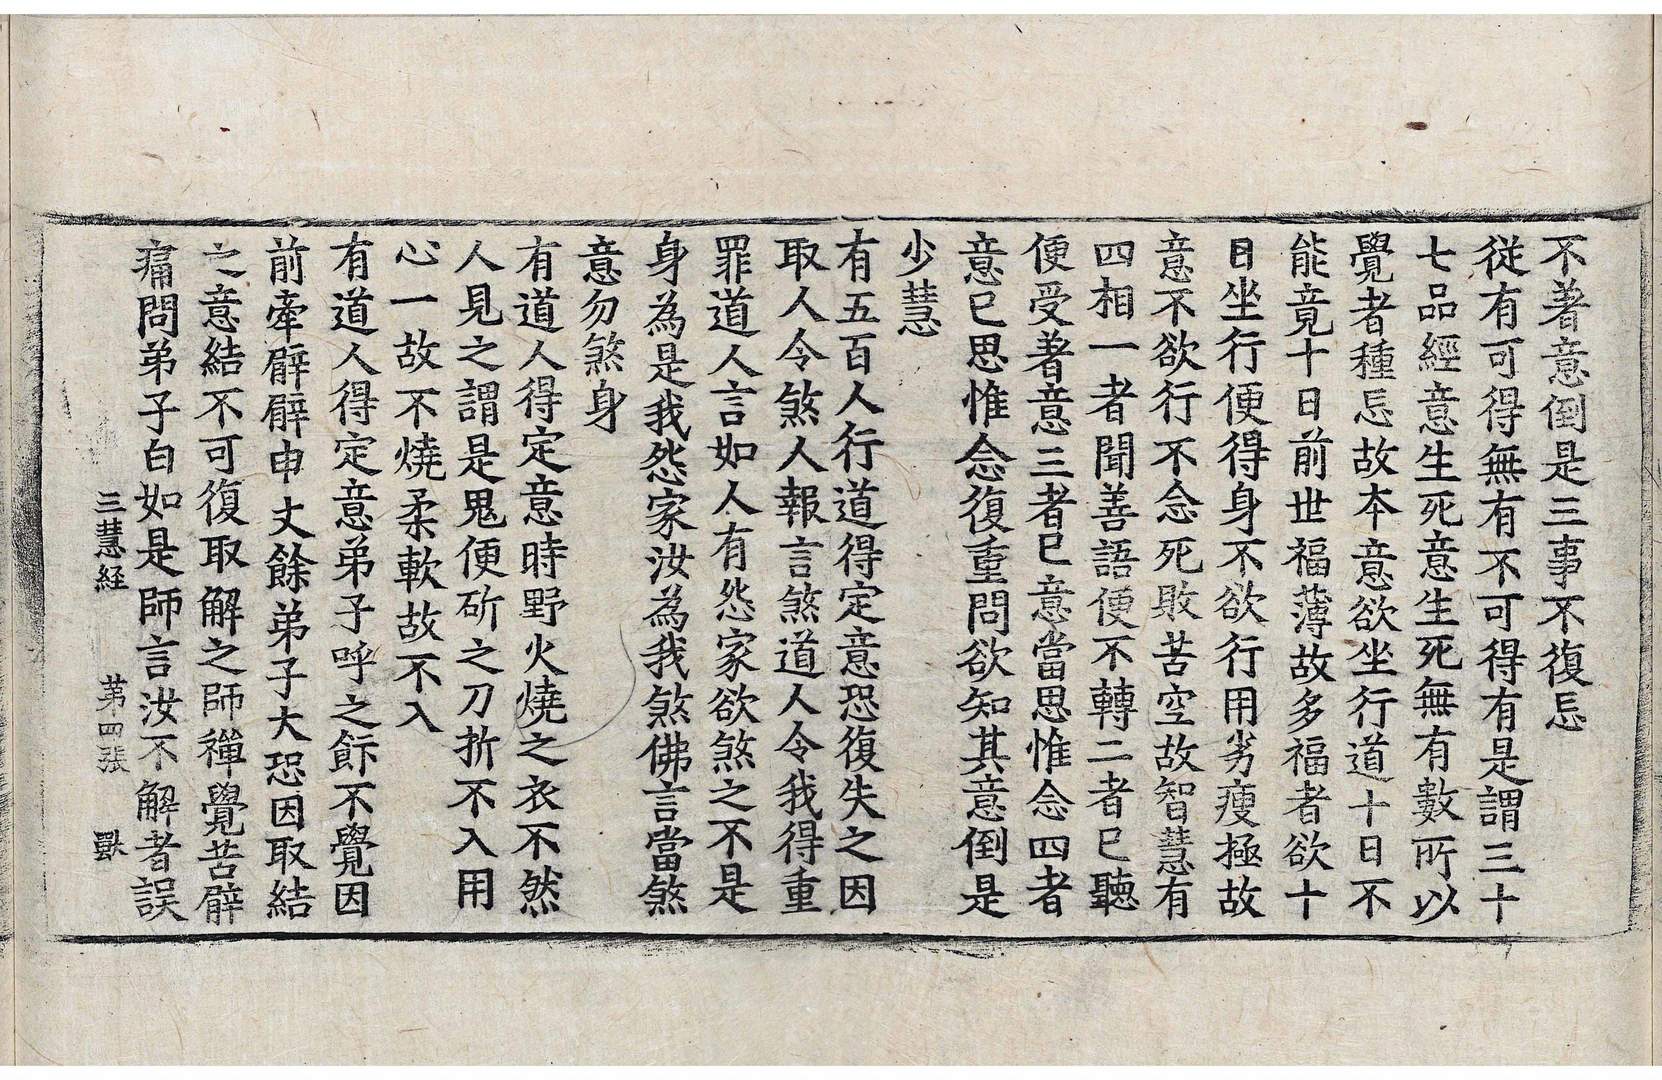 不著意倒是三事不復忘
從有可得無有不可得有是謂三十
七品經意生死意生死無有數所以
覺者種忘故本意欲坐行道十日不
能竟十日前世福薄故多福者欲十
日坐行便得身不欲行用劣瘦極故
意不欲行不念死敗苦空故智慧有
四相一者聞善語便不轉二者已聽
便受著意三者已意當思惟念四者
意已思惟念復重問欲知其意倒是
少慧
有五百人行道得定意恐復失之因
取人令煞人報言煞道人令我得重
罪道人言如人有怨家欲煞之不是
身為是我怨家汝為我煞佛言當煞
意勿煞身
有道人得定意時野火燒之衣不然
人見之謂是鬼便斫之刀折不入用
心一故不燒柔軟故不入
有道人得定意弟子呼之飰不覺因
前牽臂臂申丈餘弟子大恐因取結
之意結不可復取解之師禪覺苦臂
痛問弟子白如是師言汝不解者誤
三慧経 苐四張 獸